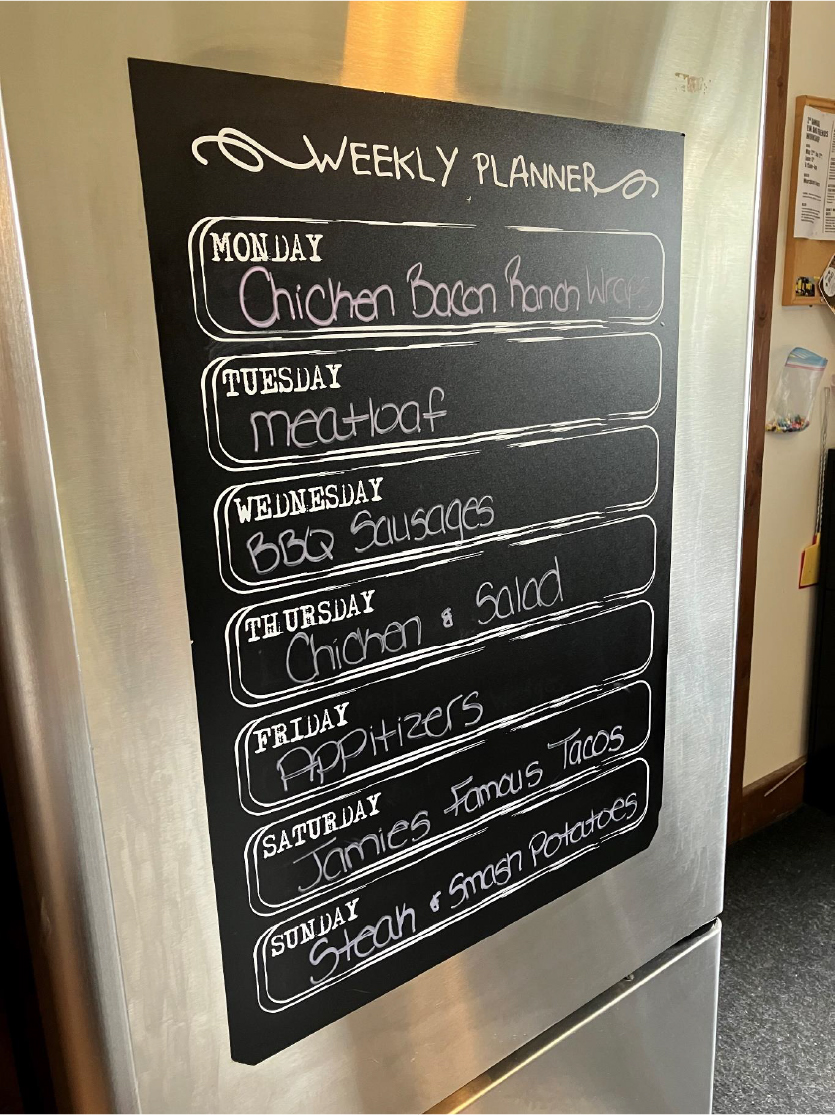 WEEKLY PLANNER
MONDAY
Chicken Bacon Ranch Wraps
TUESDAY
meatloaf
WEDNESDAY
BBQ Sausages
THURSDAY
Chicken & Salad
FRIDAY
Appitizers
SATURDAY
Jamies Famous Tacos
SUNDAY
Steak & Smash Potatoes